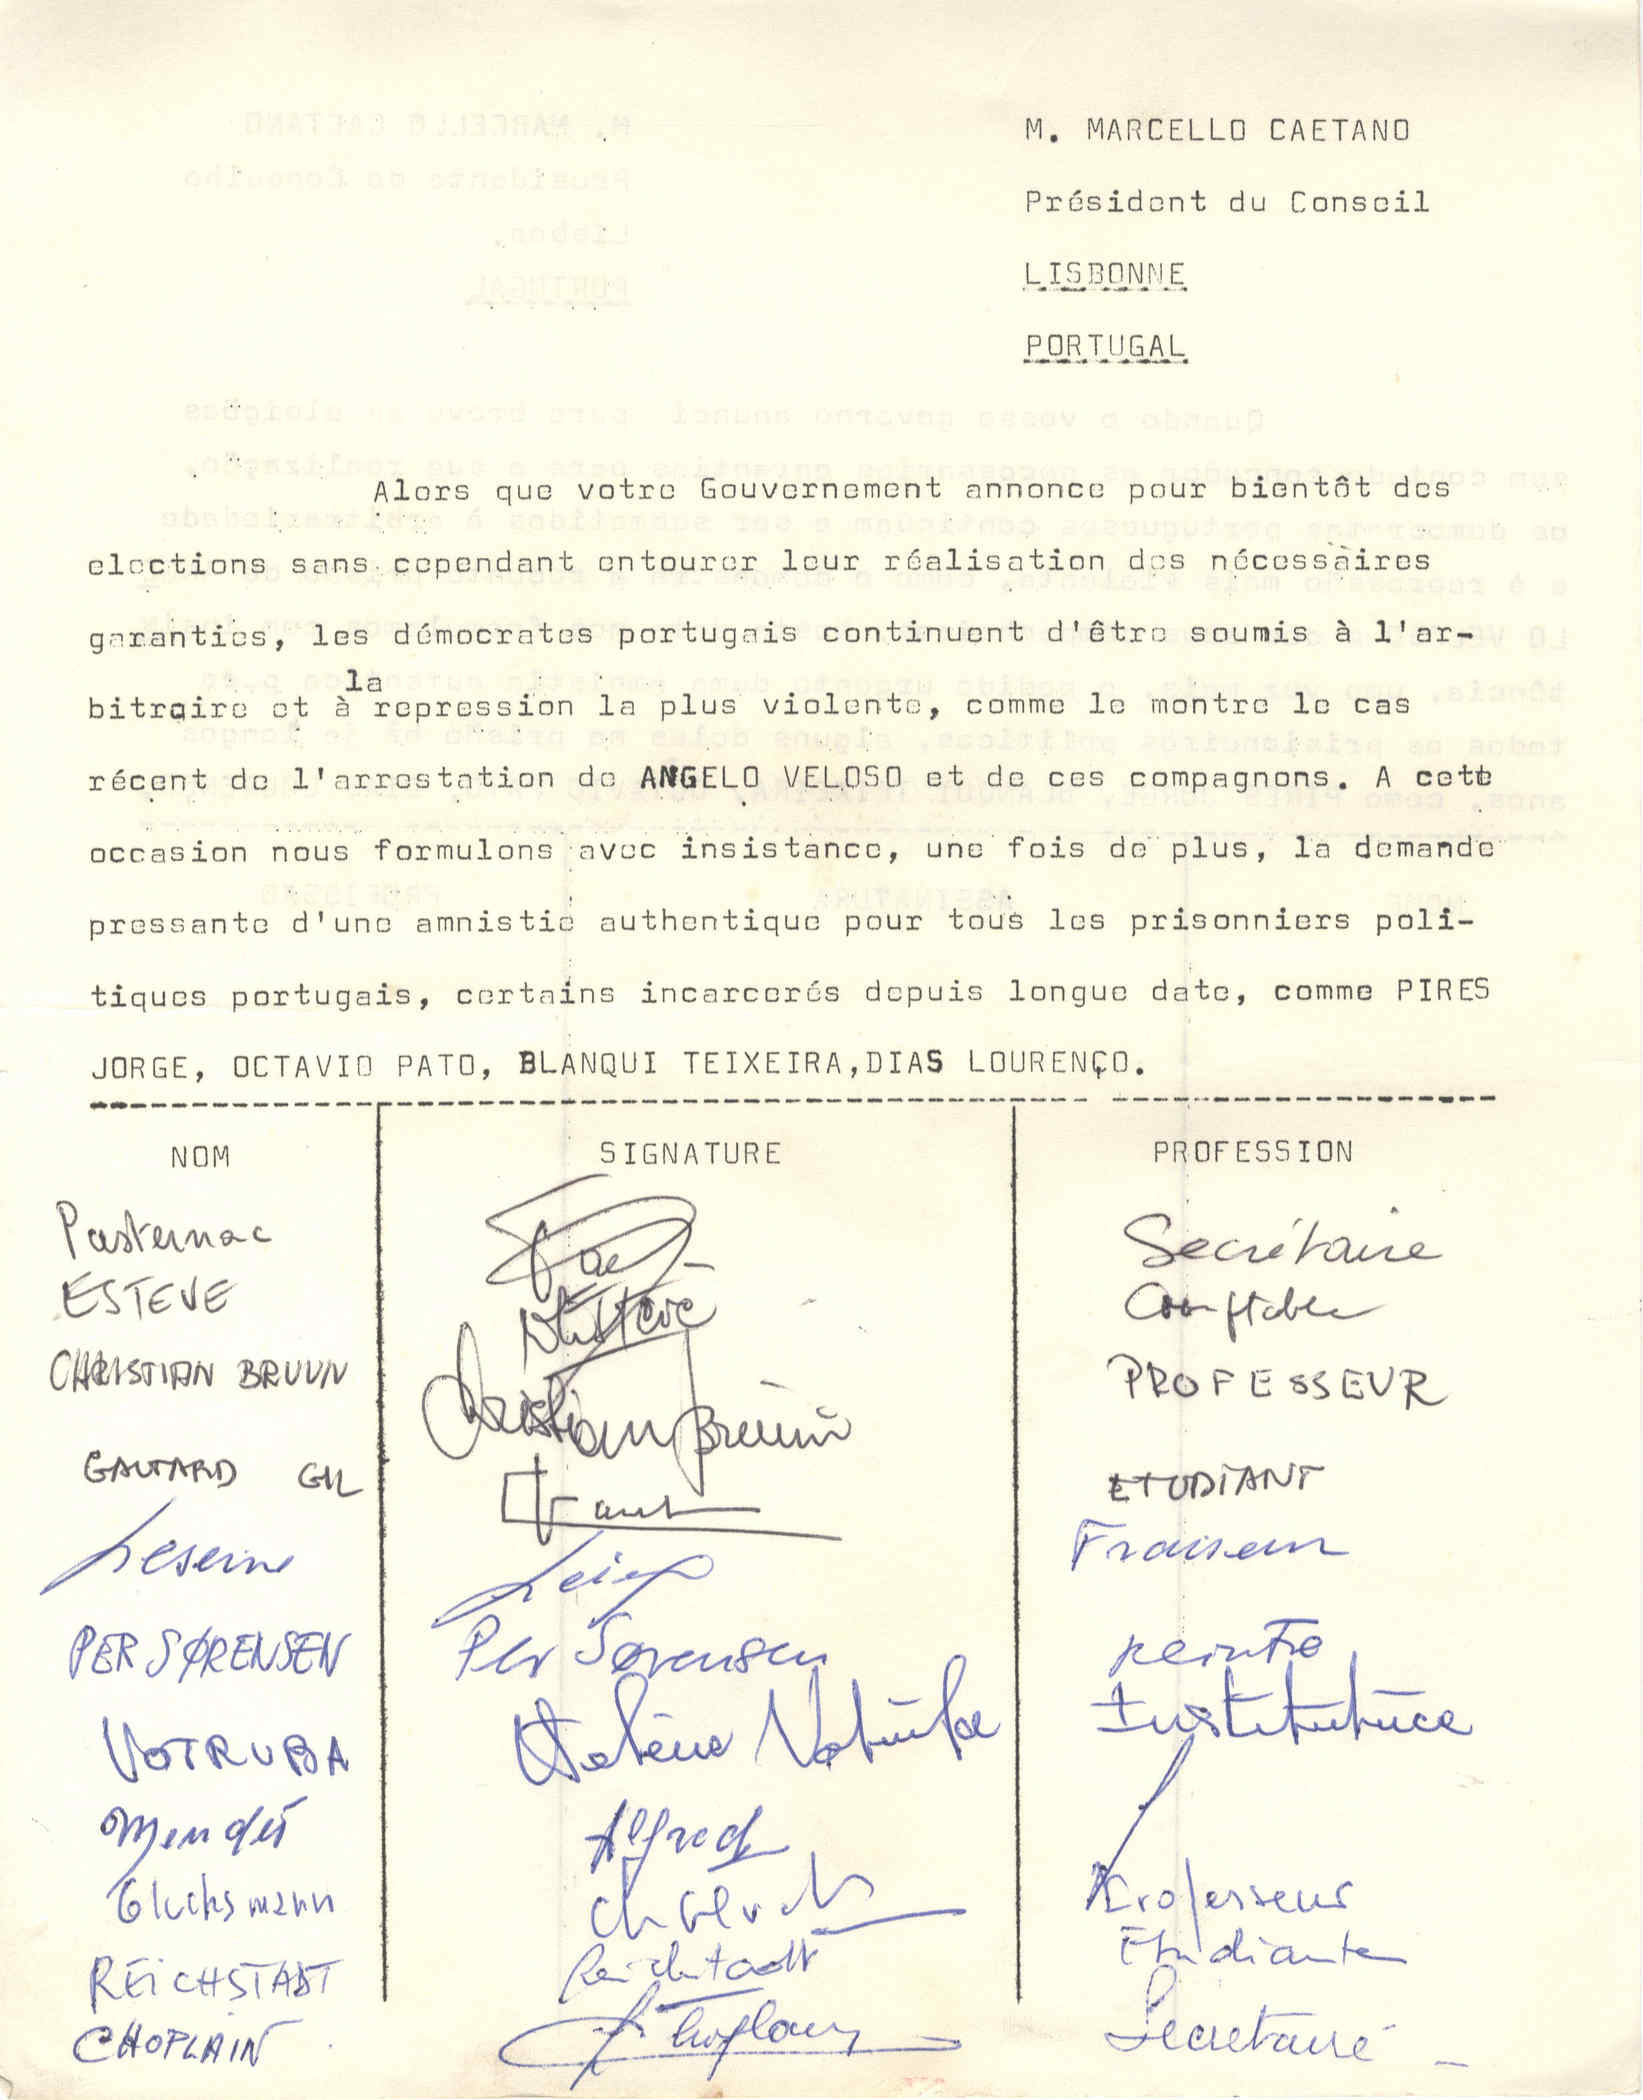 M. MARCELLO CAETANO
Président du Conseil
LISBONNE
PORTUGAL
Alors que votre Gouvernement annonce pour bientôt des
elections sans cependant entourer leur réalisation des nécessàires
garanties, les démocrates portugais continuent d'être soumis à l'ar-
la
bitraire et à repression la plus violente, comme le montre le cas
récent de l'arrestation de ANGELO VELOSO et de ces compagnons. A cett
occasion nous formulons avec insistance, une fois de plus, la demande
pressante d'une amnistie authentique pour tous les prisonniers poli-
tiques portugais, certains incarcerés depuis longue date, comme PIRES
JORGE, OCTAVIO PATO, BLANQUI TEIXEIRA, DIAS LOURENÇO.
NOM SIGNATURE PROFESSION
Pasternac Secrétaire
ESTEVE Esteve Comptable
CHRISTIAN BRUUN Christian Bruun PROFESSEUR
GAUTARD GIL Gaut ETUDIANT
Fraiseur
PER SØRENSEN Per Sørensen peintre
VOTRUBA Hélène Votruba Institutrice
Mendès Alfred
Glucksmann Professeur
REICHSTADT Reichstadt Etudiante
CHOPLAIN Choplain Secretaire